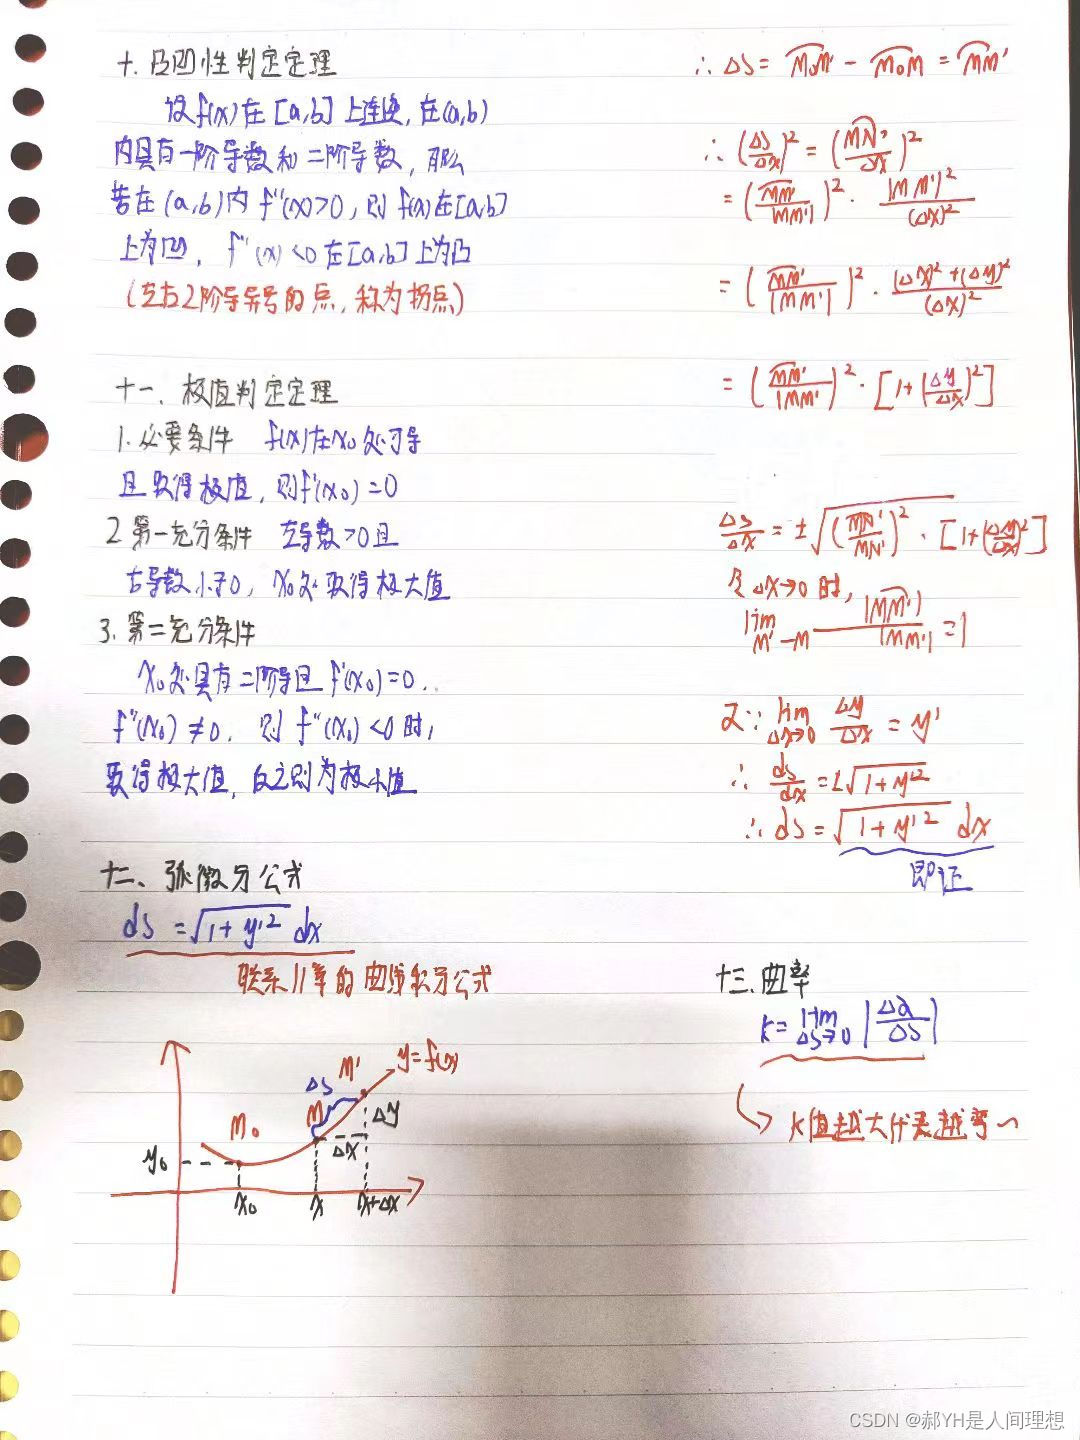 十. 凸凹性判定定理
设f(x)在[a,b]上连续,在(a,b)
内具有一阶导数和二阶导数,那么
若在(a,b)内 f''(x)>0,则 f(x)在[a,b]
上为凹, f''(x)<0在[a,b]上为凸
(左右2阶导异号的点,称为拐点)
十一、极值判定定理
1. 必要条件 f(x)在x₀处可导
且取得极值,则f'(x₀)=0
2 第一充分条件 左导数>0且
右导数小于0, x₀处取得极大值
3. 第二充分条件
x₀处具有二阶导且 f'(x₀)=0..
f''(x₀)≠0. 则 f''(x₀)<0时,
取得极大值,反之则为极小值
十二、弧微分公式
ds=√(1+y'²) dx
联系11章的曲线积分公式
y=f(x)
M'
Δs
M
M₀
Δy
Δx
y₀
x₀ x x+Δx
∴ Δs = M₀M' - M₀M = MM'
∴ (Δs/Δx)² = (MM'/Δx)²
= (MM'/|MM'|)² · |MM'|²/(Δx)²
= (MM'/|MM'|)² · (Δx)²+(Δy)²/(Δx)²
= (MM'/|MM'|)² · [1+(Δy/Δx)²]
Δs/Δx = ±√(MM'/MM')² · [1+(Δy/Δx)²]
Δx→0 时,
lim M'→M |MM'|/|MM'| =1
又∵ lim Δx→0 Δy/Δx = y'
∴ ds/dx = ±√1+y'²
∴ ds = √1+y'² dx
即证
十三.曲率
K= lim Δs→0 |Δα/Δs|
K值越大代表越弯~
CSDN @郝YH是人间理想